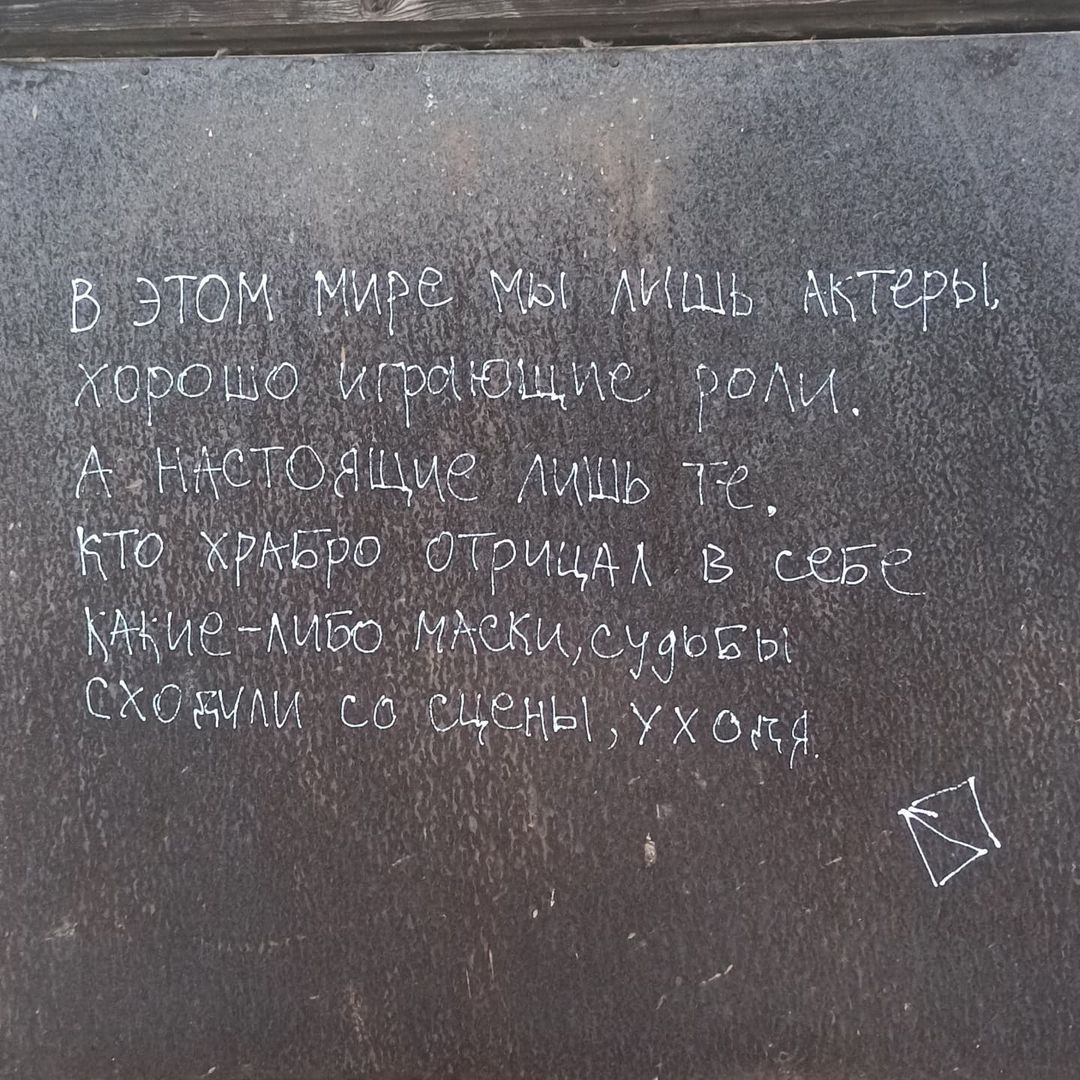 В ЭТОМ МИРЕ МЫ ЛИШЬ АКТЕРЫ,
ХОРОШО ИГРАЮЩИЕ РОЛИ.
А НАСТОЯЩИЕ ЛИШЬ ТЕ,
КТО ХРАБРО ОТРИЦАЛ В СЕБЕ
КАКИЕ-ЛИБО МАСКИ, СУДЬБЫ
СХОДИЛИ СО СЦЕНЫ, УХОДЯ.